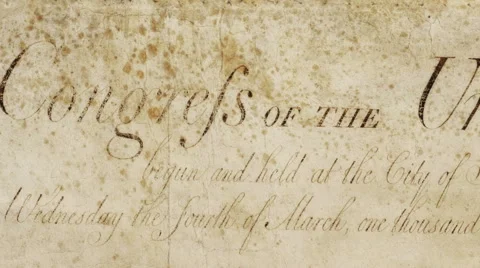 Congreſs OF THE Un
begun and held at the City of
Wednesday the Fourth of March, one thousand